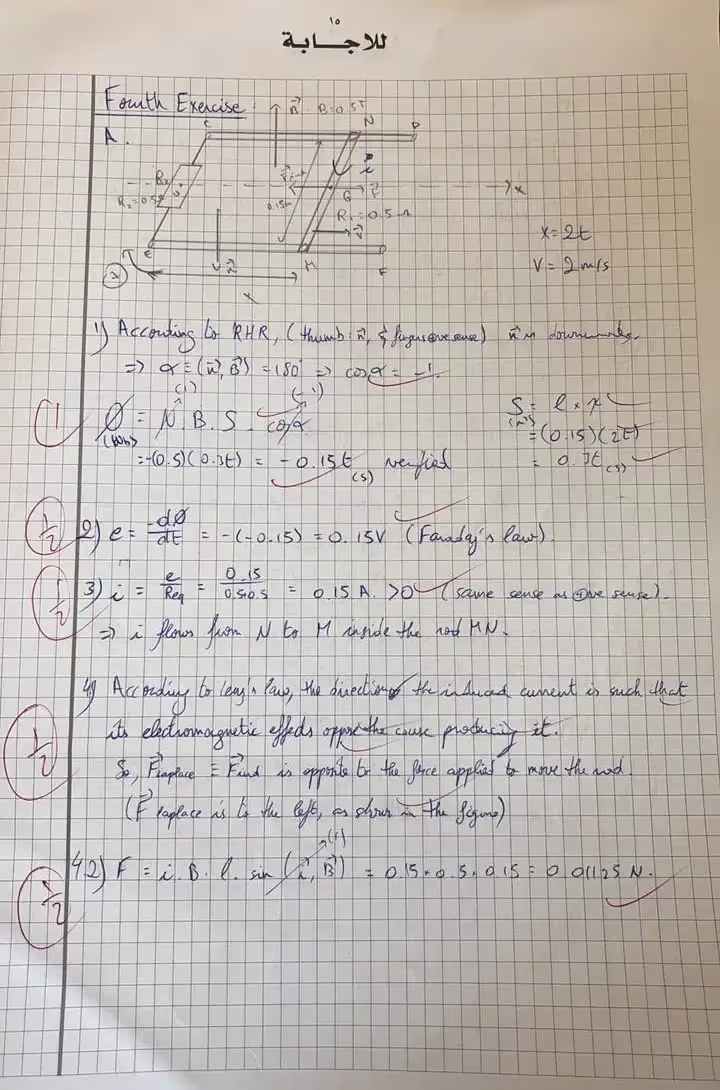 ١٥
للاجـــابة
Fourth Exercise:
A.
B⃗ B=0.5T
C
N
D
i
R₂=0.5
0.15m
G
F⃗
x
R₁=0.5Ω
V⃗
e
n⃗
M
F
x
x=2t
V=2m/s
1) According to RHR, (thumb: n⃗, & fingers: +ve sense) n⃗ is downwards.
⇒ α = (n⃗, B⃗) = 180° ⇒ cosα = -1.
(1) (-1)
Ø = N. B. S. cosα
(Wb)
= -(0.5)(0.3t) = -0.15t (S) verified
S = l × x
(m²)
= (0.15)(2t)
= 0.3t (S)
1
2) e = -dØ/dt = -(-0.15) = 0.15V (Faraday's law).
1/2
3) i = e/Req = 0.15/0.5+0.5 = 0.15 A. >0 (same sense as +ve sense).
1/2
⇒ i flows from N to M inside the rod MN.
4.1) According to lenz's law, the direction of the induced current is such that
its electromagnetic effects oppose the cause producing it.
So, F⃗laplace ≡ F⃗ind is opposite to the force applied to move the rod.
(F⃗ laplace is to the left, as shown in the figure)
1/2
(1)
4.2) F = i. B. l. sin (i⃗, B⃗) = 0.15 × 0.5 × 0.15 = 0.01125 N.
1/2